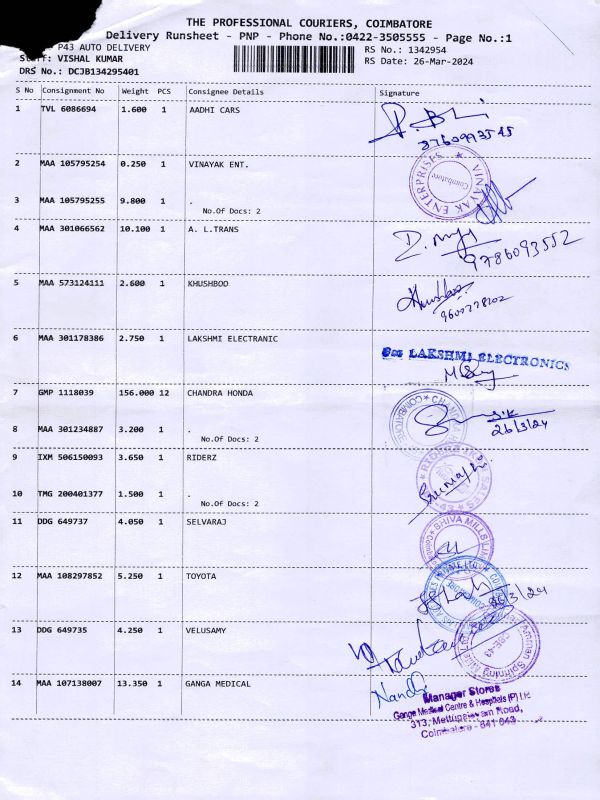 THE PROFESSIONAL COURIERS, COIMBATORE
Delivery Runsheet - PNP - Phone No.:0422-3505555 - Page No.:1
P43 AUTO DELIVERY
RS No.: 1342954
Staff: VISHAL KUMAR
RS Date: 26-Mar-2024
DRS No.: DCJB134295401
S No Consignment No Weight PCS Consignee Details Signature
1 TVL 6086694 1.600 1 AADHI CARS
2 MAA 105795254 0.250 1 VINAYAK ENT.
VINAYAK ENTERPRISES
Coimbatore
3 MAA 105795255 9.800 1 .
No.Of Docs: 2
4 MAA 301066562 10.100 1 A. L.TRANS
9786093552
5 MAA 573124111 2.600 1 KHUSHBOO
6 MAA 301178386 2.750 1 LAKSHMI ELECTRANIC
For LAKSHMI ELECTRONICS
7 GMP 1118039 156.000 12 CHANDRA HONDA
8 MAA 301234887 3.200 1 .
No.Of Docs: 2
26/3/24
9 IXM 506150093 3.650 1 RIDERZ
10 TMG 200401377 1.500 1 .
No.Of Docs: 2
11 DDG 649737 4.050 1 SELVARAJ
SHIVA MILLS
12 MAA 108297852 5.250 1 TOYOTA
13 DDG 649735 4.250 1 VELUSAMY
14 MAA 107138007 13.350 1 GANGA MEDICAL
Manager Stores
Ganga Medical Centre & Hospitals (P) Ltd
313, Mettupalayam Road,
Coimbatore - 641 043